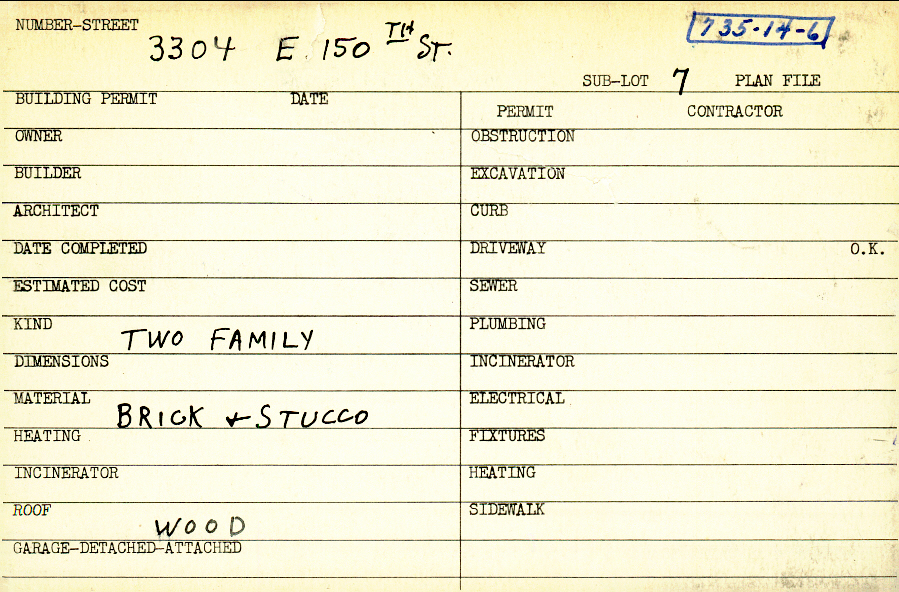 NUMBER-STREET
3304 E 150 TH ST.
735-14-6
SUB-LOT 7 PLAN FILE
BUILDING PERMIT DATE
PERMIT CONTRACTOR
OWNER
OBSTRUCTION
BUILDER
EXCAVATION
ARCHITECT
CURB
DATE COMPLETED
DRIVEWAY O.K.
ESTIMATED COST
SEWER
KIND TWO FAMILY
PLUMBING
DIMENSIONS
INCINERATOR
MATERIAL BRICK + STUCCO
ELECTRICAL
HEATING
FIXTURES
INCINERATOR
HEATING
ROOF WOOD
SIDEWALK
GARAGE-DETACHED-ATTACHED